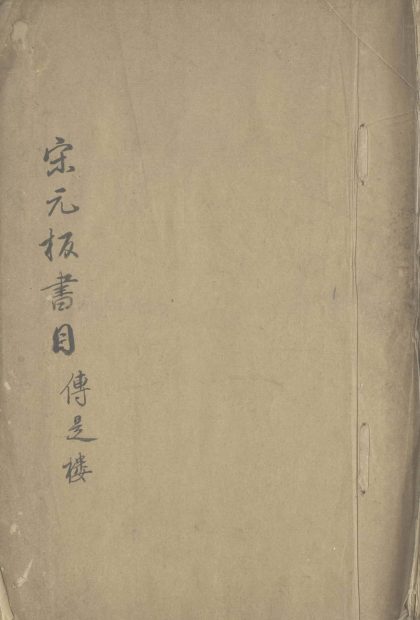 宋元板書目
傳是楼